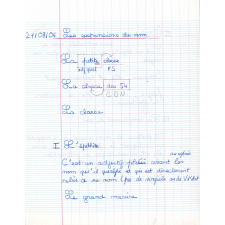 21/09/06 Les expansions du nom
La petite classe
adj qual FS
La classe des 54
CDN
La classe
I L'épithète
ou après
C'est un adjectif placé avant le
nom qu'il qualifie et qui est directement
relié à ce nom (pas de virgule ni de verbe)
Le grand